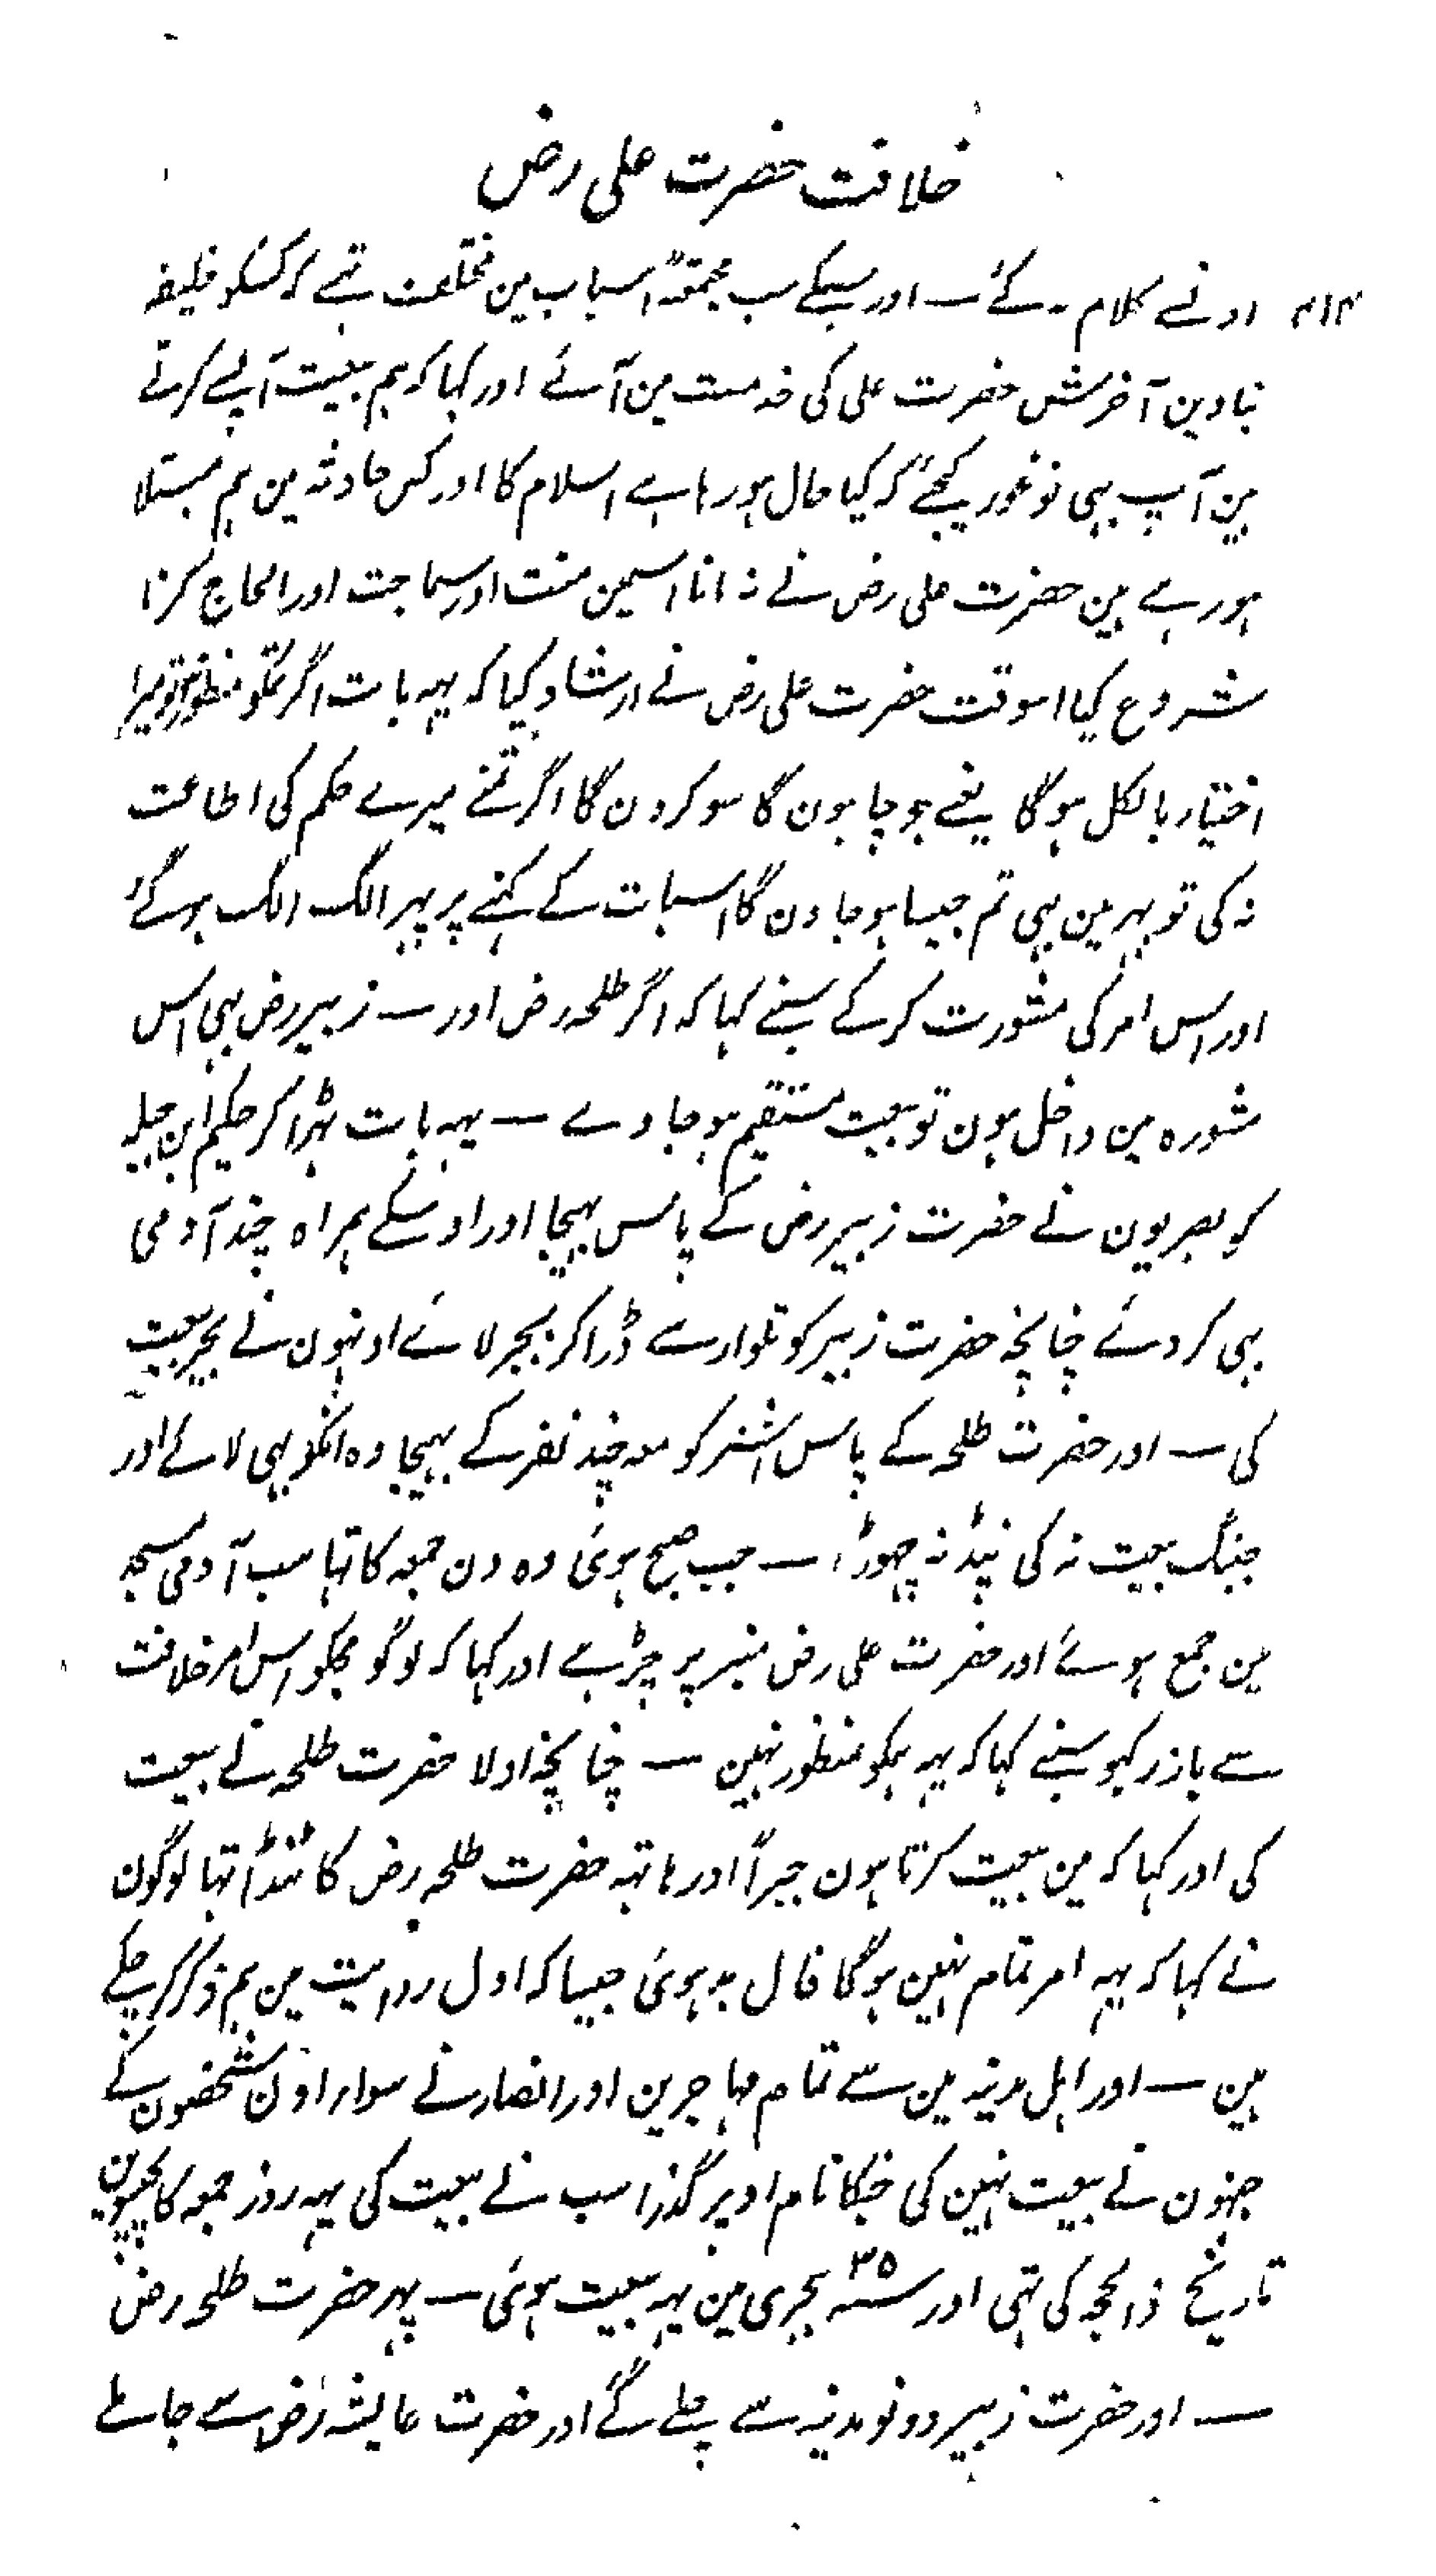 خلافت حضرت علی رض
۴۱۴ اونسے کلام ۔ کے ۔ اور سبکے سب مجتمعہ اسباب مین مختلف تہے کہ کسکو خلیفہ
بنا دین آخرش حضرت علی کی خدمت مین آئے اور کہا کہ ہم بیعت آپسے کرتے
ہین آپ ہی تو غور کیجئے کہ کیا حال ہو رہا ہے اسلام کا اور کس حادثہ مین ہم مبتلا
ہو رہے ہین حضرت علی رض نے نہ مانا اسمین منت اور سماجت اور الحاج کرنا
شروع کیا اسوقت حضرت علی رض نے ارشاد کیا کہ یہہ بات اگر تمکو منظور ہے تو میرا
اختیار بالکل ہو گا یعنے جو چاہون گا سو کرون گا اگر تمنے میرے حکم کی اطاعت
نہ کی تو پہر مین بہی تم جیسا ہو جاون گا اسبات کے کہنے پر پہر الگ الگ ہو گئے
اور اس امر کی مشورت کر کے سبنے کہا کہ اگر طلحہ رض اور ۔ زبیر رض بہی اس
شورہ مین داخل ہون تو بیعت مستقیم ہو جاوے ۔ یہہ بات ٹہرا کر حکیم ابن جبلہ
کو بصریون نے حضرت زبیر رض کے پاس بہیجا اور اونکے ہمراہ چند آدمی
بہی کر دئے چنانچہ حضرت زبیر کو تلوار سے ڈرا کر بجبر لائے اونہون نے بجبر بیعت
کی ۔ اور حضرت طلحہ کے پاس اشتر کو معہ چند نفر کے بہیجا وہ انکو بہی لائے اور
جبتک بیعت نہ کی پنڈ نہ چہوڑا ۔ جب صبح ہوئی وہ دن جمعہ کا تہا سب آدمی مسجد
مین جمع ہوئے اور حضرت علی رض منبر پر چڑہے اور کہا کہ لوگو مجکو اس امر خلافت
سے باز رکہو سبنے کہا کہ یہہ ہمکو منظور نہین ۔ چنانچہ اولا حضرت طلحہ نے بیعت
کی اور کہا کہ مین بیعت کرتا ہون جبراً اور ہاتہہ حضرت طلحہ رض کا ٹنڈا تہا لوگون
نے کہا کہ یہہ امر تمام نہین ہو گا فال بد ہوئی جیسا کہ اول روایت مین ہم ذکر کر چکے
ہین ۔ اور اہل مدینہ مین سے تمام مہاجرین اور انصار نے سوار اون شخصون کے
جنہون نے بیعت نہین کی جنکا نام اوپر گذرا سب نے بیعت کی یہہ روز جمعہ کا پچیسوین
تاریخ ذالحجہ کی تہی اور سنہ ۳۵ ہجری مین یہہ بیعت ہوئی ۔ پہر حضرت طلحہ رض
۔ اور حضرت زبیر دونو مدینہ سے چلے گے اور حضرت عایشہ رض سے جا ملے